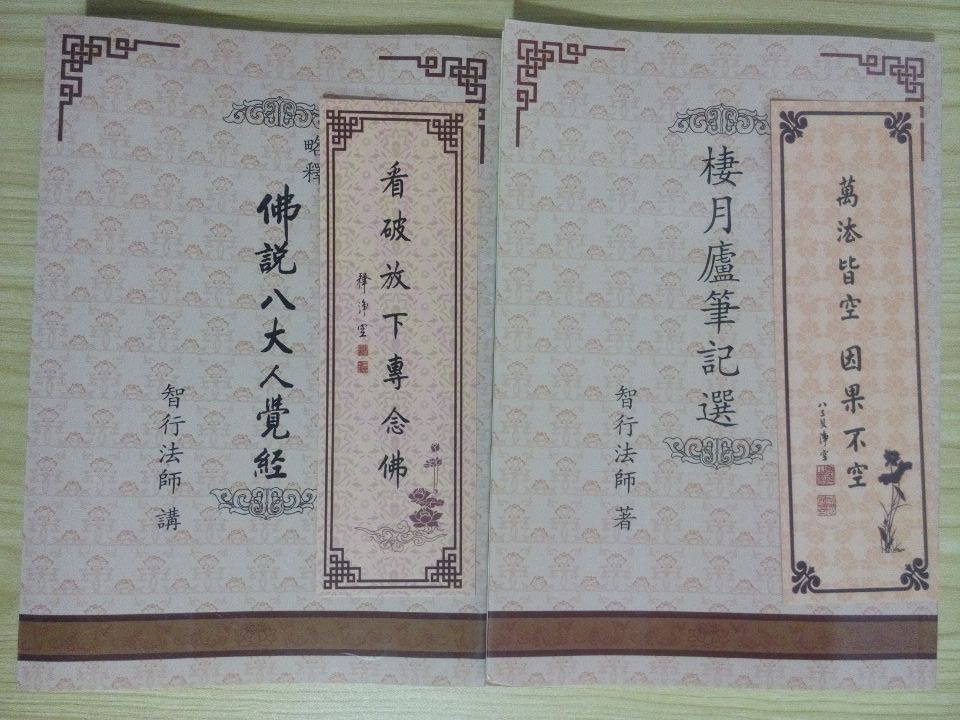 略釋
佛説八大人覺経
智行法師 講
看破放下專念佛
釋淨空
棲月廬筆記選
智行法師 著
萬法皆空 因果不空
淨空